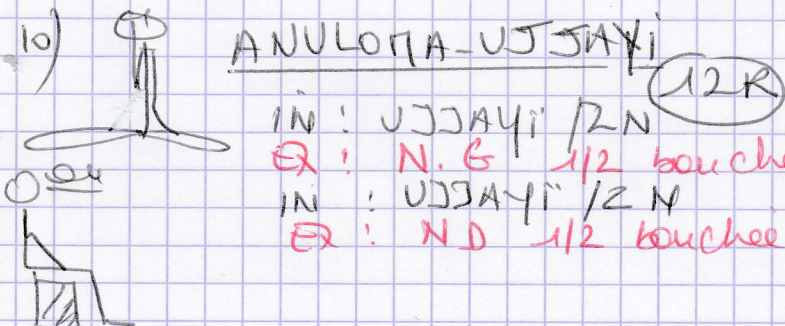 10) ANULOMA-UJJAYi
12R
iN : UJJAYi /2N
EX : N.G 1/2 bouche
ou
iN : UJJAYi /2N
EX : ND 1/2 bouchée